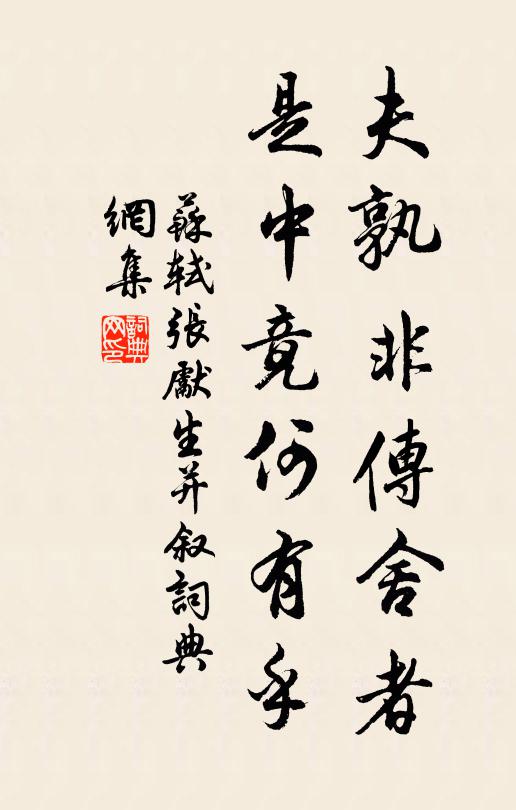 夫孰非傳舍者
是中竟何有乎
蘇軾張獻生并叙詞典
網集
詞典
网印